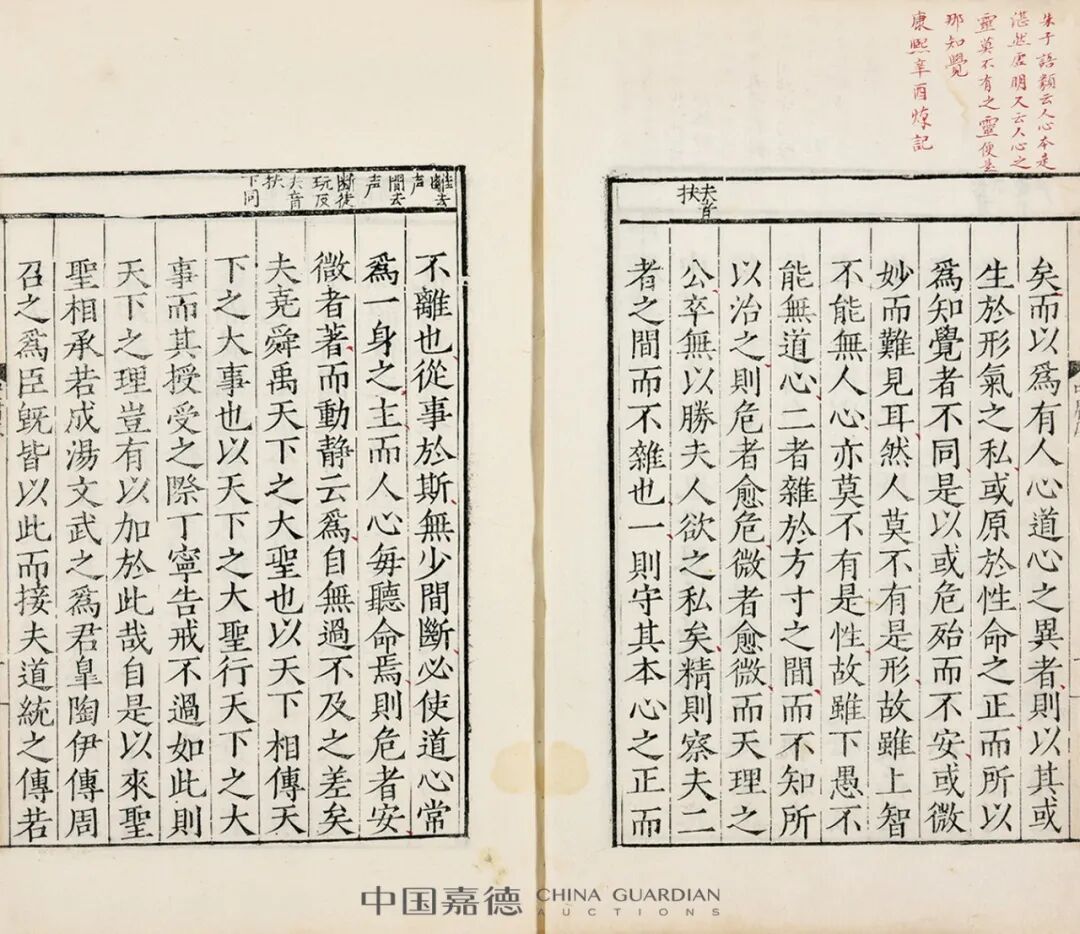 朱子語類云人心本是
湛然虛明又云人心之
靈莫不有之靈便是
那知覺
康熙辛酉煉記
夫音
扶
矣而以爲有人心道心之異者則以其或
生於形氣之私或原於性命之正而所以
爲知覺者不同是以或危殆而不安或微
妙而難見耳然人莫不有是形故雖上智
不能無人心亦莫不有是性故雖下愚不
能無道心二者雜於方寸之間而不知所
以治之則危者愈危微者愈微而天理之
公卒無以勝夫人欲之私矣精則察夫二
者之間而不雜也一則守其本心之正而
離去
声
間去
声
斷徒
玩反
夫音
扶
下同
不離也從事於斯無少間斷必使道心常
爲一身之主而人心每聽命焉則危者安
微者著而動静云爲自無過不及之差矣
夫堯舜禹天下之大聖也以天下相傳天
下之大事也以天下之大聖行天下之大
事而其授受之際丁寧告戒不過如此則
天下之理豈有以加於此哉自是以來聖
聖相承若成湯文武之爲君皐陶伊傅周
召之爲臣旣皆以此而接夫道統之傳若
中国嘉德 CHINA GUARDIAN
AUCTIONS